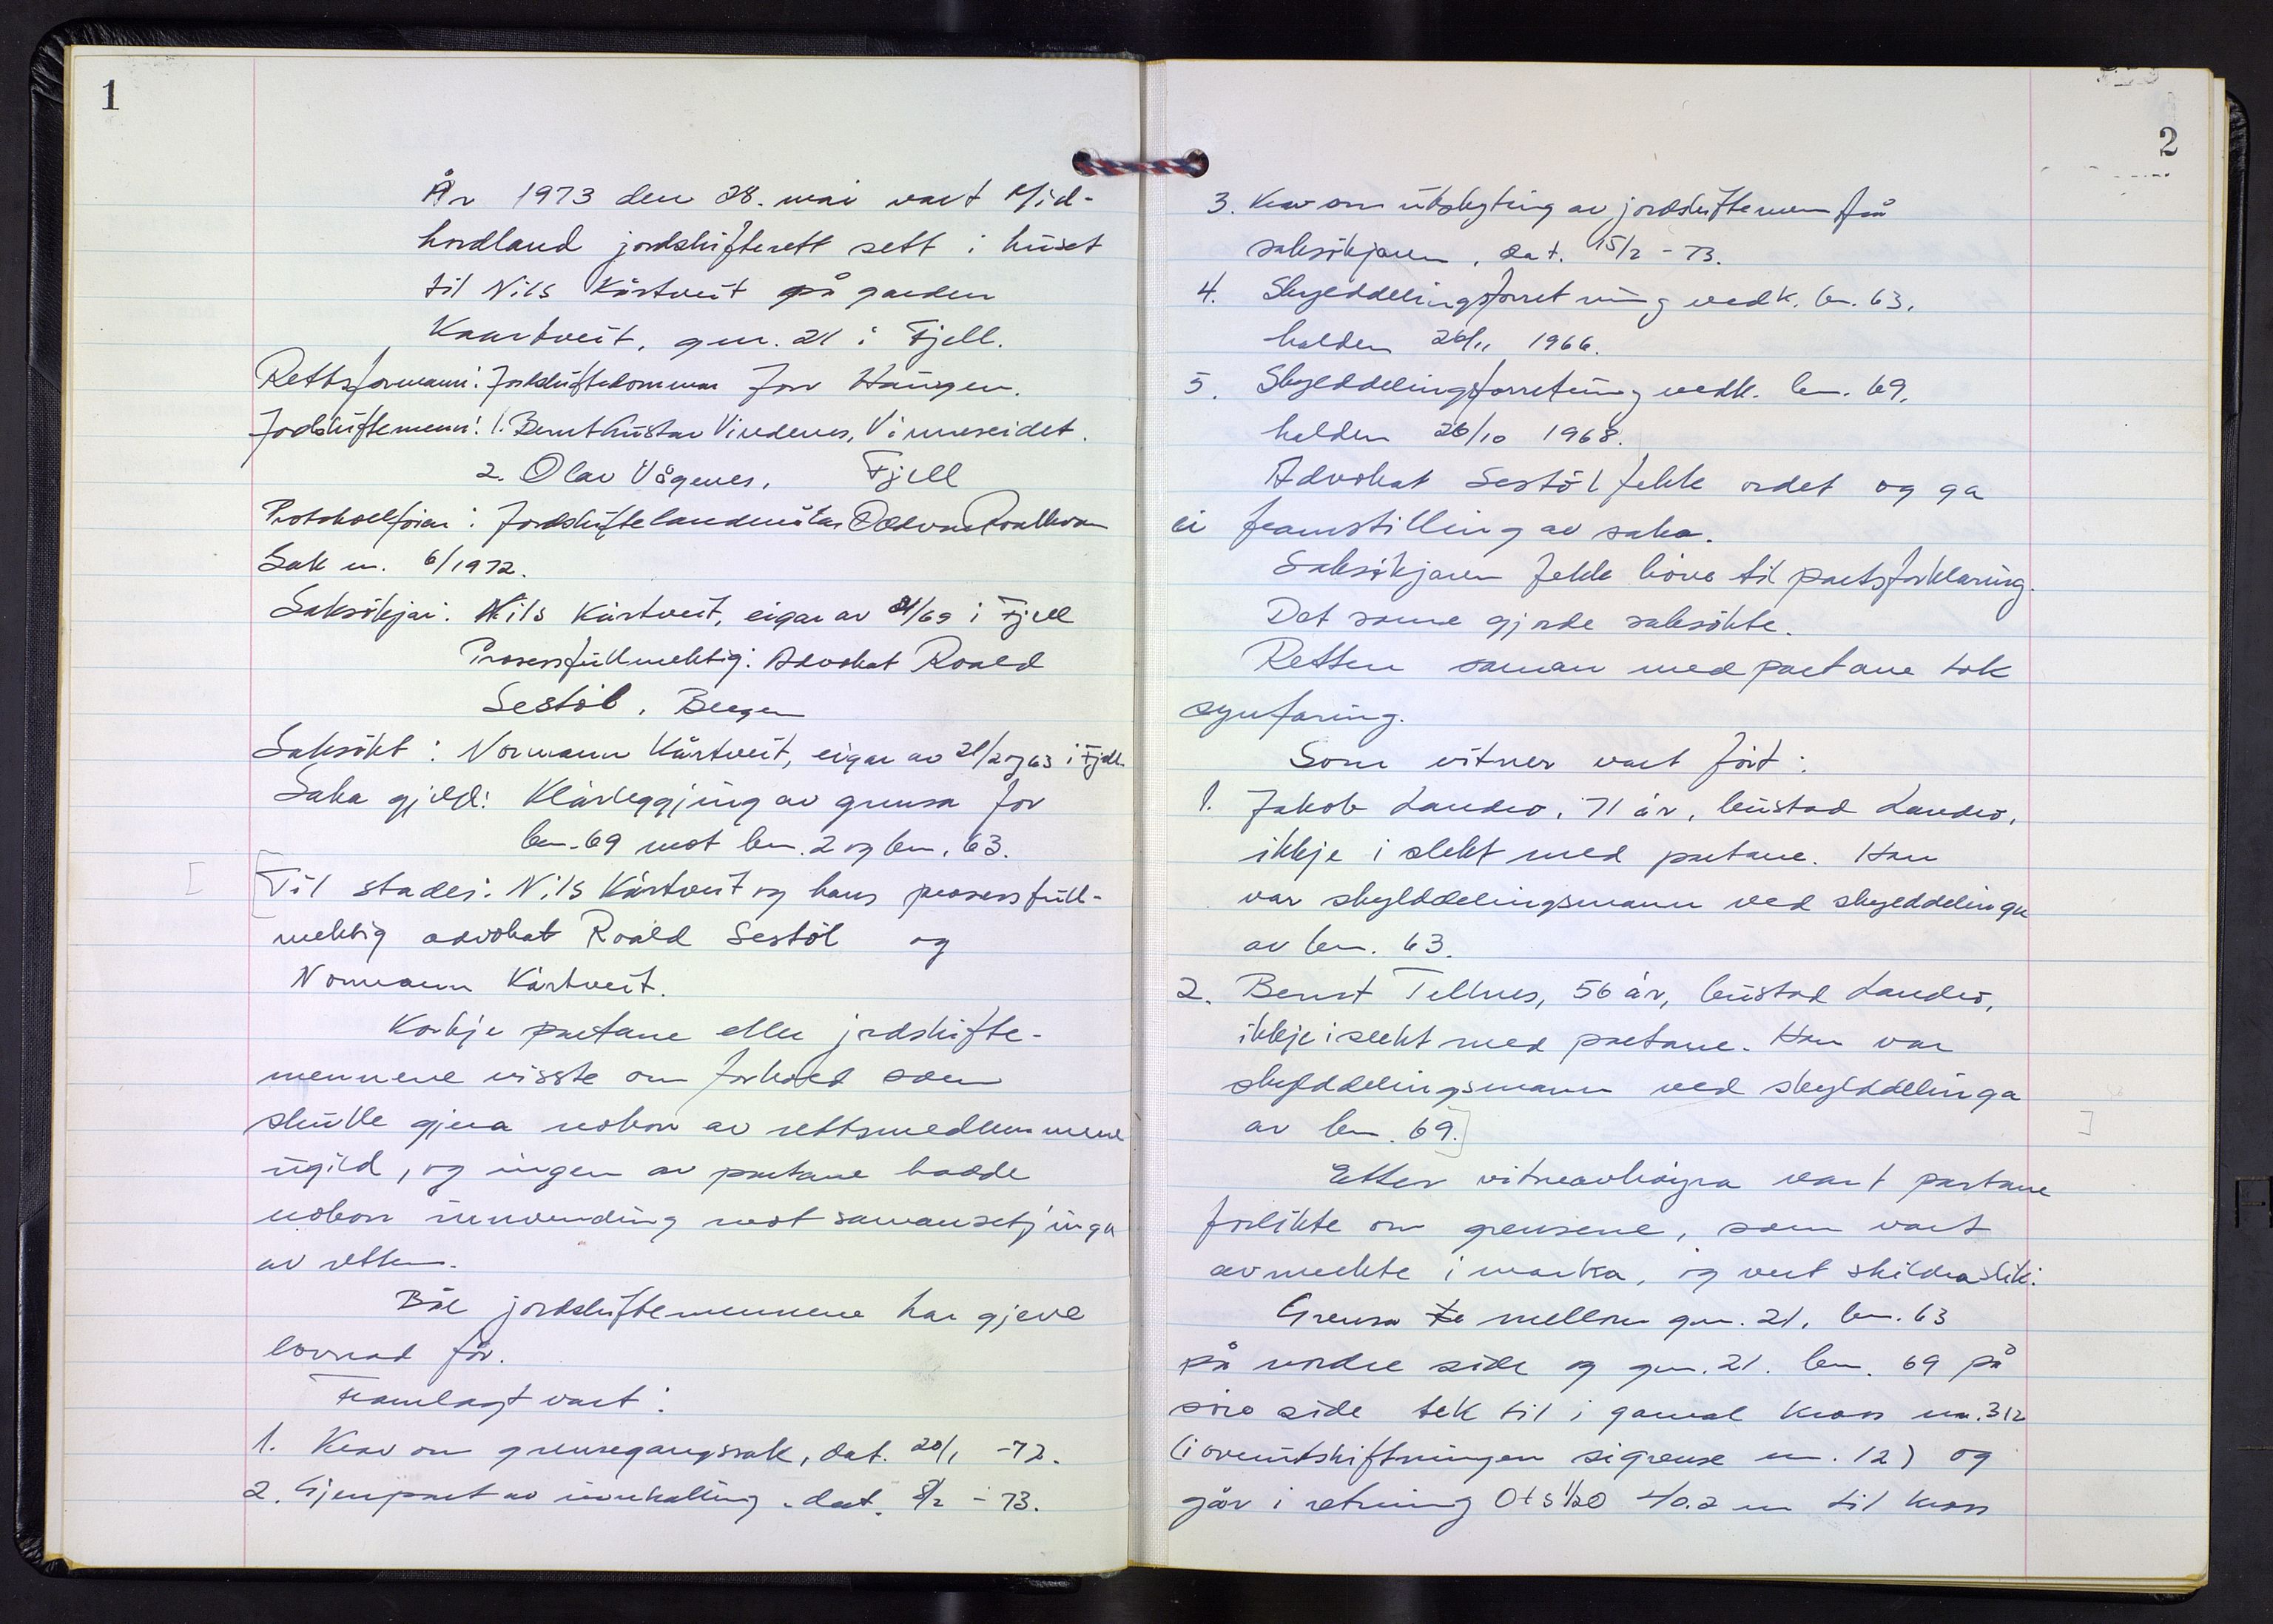 1
År 1973 den 28. mai vart Mid-
hordland jordskifterett sett i huset
til Nils Kårtveit på garden
Kaartveit, gnr. 21 i Fjell.
Rettsformann: Jordskiftedommar Jon Haugen.
Jordskiftemenn: 1. Bernt Gustav Vindenes, Vinneseidet.
2. Olav Vågenes, Fjell
Protokollførar: Jordskiftelandmålar Oddvar
Sak nr. 6/1972.
Saksøkjar: Nils Kårtveit, eigar av 21/69 i Fjell
Prosessfullmektig: Advokat Roald
Sestøl, Bergen
Saksøkt: Normann Kårtveit, eigar av 21/2 og 63 i Fjell.
Saka gjeld: Klårleggjing av grensa for
bnr. 69 mot bnr. 2 og bnr. 63.
Til stades: Nils Kårtveit og hans prosessfull-
mektig advokat Roald Sestøl og
Normann Kårtveit.
Korkje partane eller jordskifte-
mennene visste om forhold som
skulle gjera nokon av rettsmedlemmene
ugild, og ingen av partane hadde
nokon innvending mot samansetjinga
av retten.
Båe jordskiftemennene har gjeve
lovnad før.
Framlagt vart:
1. Krav om grensegangssak, dat. 20/1 -72.
2. Gjenpart av innkalling, dat. 8/2 - 73.
2
3. Krav om utskyting av jordskiftemenn frå
saksøkjaren, dat. 15/2 - 73.
4. Skylddelingsforretning vedk. bnr. 63,
halden 26/11 1966.
5. Skylddelingsforretning vedk. bnr. 69,
halden 26/10 1968.
Advokat Sestøl fekk ordet og ga
ei framstilling av saka.
Saksøkjaren fekk høve til partsforklaring.
Det same gjorde saksøkte.
Retten saman med partane tok
synfaring.
Som vitner vart ført:
1. Jakob Landro, 71 år, bustad Landro,
ikkje i slekt med partane. Han
var skylddelingsmann ved skylddelinga
av bnr. 63.
2. Bernt Tellnes, 56 år, bustad Landro,
ikkje i slekt med partane. Han var
skylddelingsmann ved skylddelinga
av bnr. 69.
Etter vitneavhøyra vart partane
forlikte om grensene, som vart
avmerkte i marka, og vert skildra slik:
Grensa mellom gnr. 21, bnr. 63
på nordre side og gnr. 21. bnr. 69 på
søre side tek til i gamal kross nr. 312
(i overutskiftningen sigrense nr. 12) og
går i retning OtS 1/2 O 40.2 m til kross